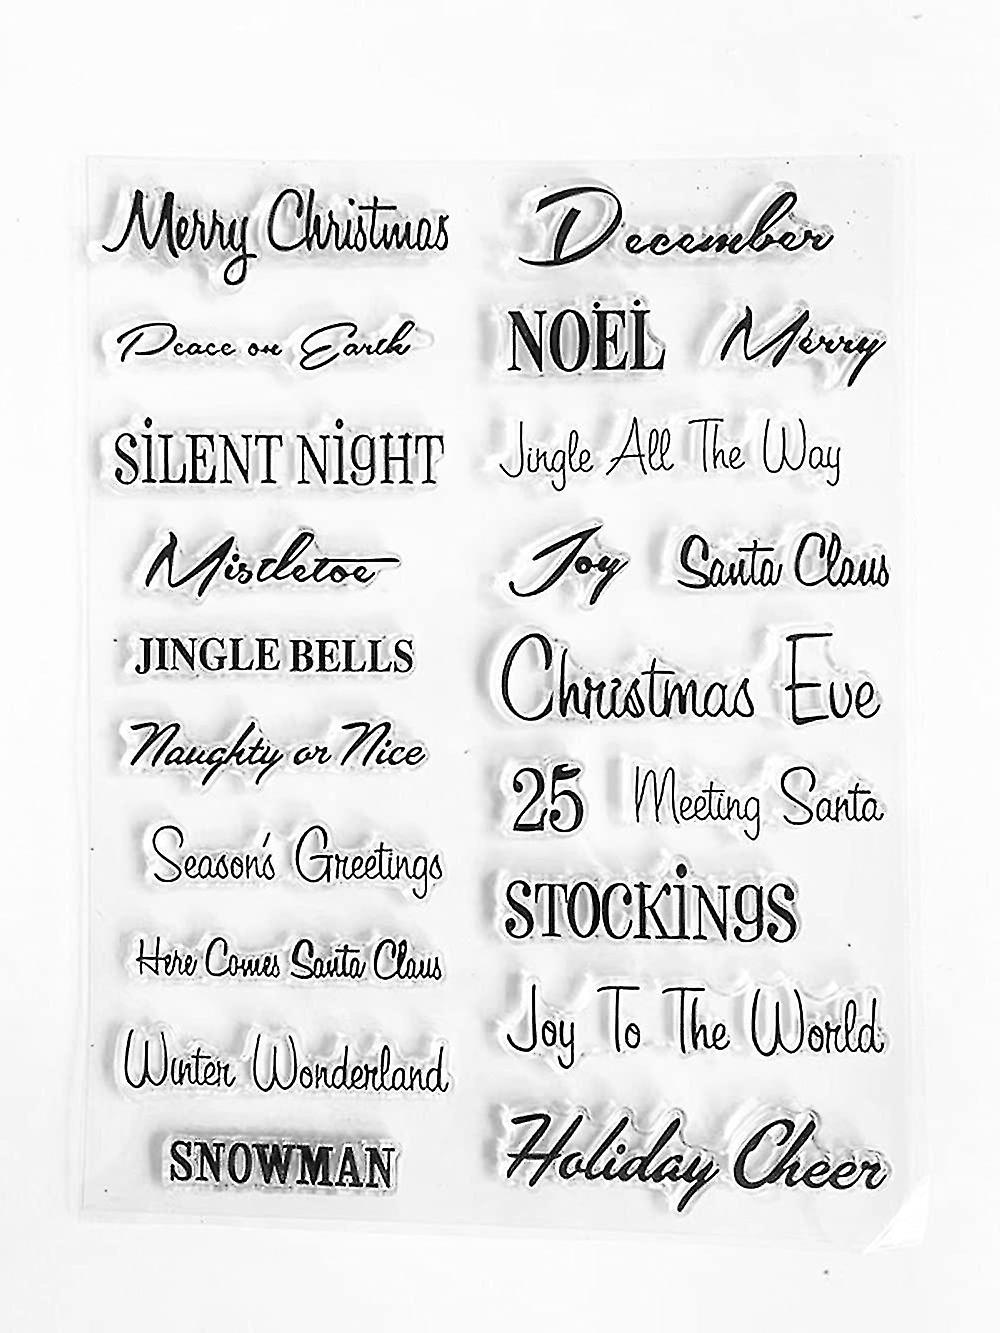 Merry Christmas
Peace on Earth
SiLENT NiGHT
Mistletoe
JINGLE BELLS
Naughty or Nice
Season's Greetings
Here Comes Santa Claus
Winter Wonderland
SNOWMAN
December
NOËL Merry
Jingle All The Way
Joy Santa Claus
Christmas Eve
25 Meeting Santa
STOCKiNGS
Joy To The World
Holiday Cheer